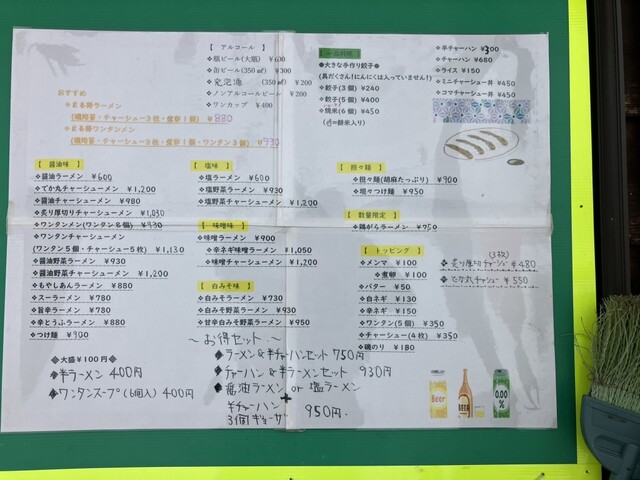 【 アルコール 】
❖瓶ビール(大瓶) ¥600
❖缶ビール(350㎖) ¥300
❖発泡酒 (350㎖) ¥200
❖ノンアルコールビール ¥200
❖ワンカップ ¥400
おすすめ
❖まる勝ラーメン
(磯培苔・チャーシュー3枚・煮卵1個) ¥880
❖まる勝ワンタンメン
(磯培苔・チャーシュー3枚・煮卵1個・ワンタン3個) ¥930
●大きな手作り餃子●
(具だくさん!にんにくは入っていません!)
❖餃子(3個) ¥240
❖餃子(5個) ¥400
❖焼米(6個) ¥450
❖半チャーハン ¥300
❖チャーハン ¥680
❖ライス ¥150
❖ミニチャーシュー丼 ¥450
❖コマチャーシュー丼 ¥450
【 醤油味 】
❖醤油ラーメン ¥600
❖でか丸チャーシューメン ¥1,200
❖醤油チャーシューメン ¥980
❖炙り厚切りチャーシューメン ¥1,030
❖ワンタンメン(ワンタン8個) ¥930
❖ワンタンチャーシューメン
(ワンタン5個・チャーシュー5枚) ¥1,130
❖醤油野菜ラーメン ¥930
❖醤油野菜チャーシューメン ¥1,200
❖もやしあんラーメン ¥880
❖スーラーメン ¥780
❖旨辛ラーメン ¥780
❖辛とうふラーメン ¥880
❖つけ麺 ¥900
【 塩味 】
❖塩ラーメン ¥600
❖塩野菜ラーメン ¥930
❖塩野菜チャーシューメン ¥1,200
【 味噌味 】
❖味噌ラーメン ¥900
❖辛ネギ味噌ラーメン ¥1,050
❖味噌チャーシューメン ¥1,200
【 白みそ味 】
❖白みそラーメン ¥730
❖白みそ野菜ラーメン ¥930
❖甘辛白みそ野菜ラーメン ¥950
【 担々麺 】
❖担々麺(胡麻たっぷり) ¥900
❖坦々つけ麺 ¥950
【 数量限定 】
❖鶏がらラーメン ¥750
【 トッピング 】
❖メンマ ¥100
❖煮卵 ¥100
❖バター ¥50
❖白ネギ ¥130
❖辛ネギ ¥150
❖ワンタン(5個) ¥350
❖チャーシュー(4枚) ¥350
❖磯のり ¥180
(3枚)
❖炙り厚切チャーシュー ¥480
❖でか丸チャーシュー ¥550
◆大盛¥100円◆
◆半ラーメン 400円
◆ワンタンスープ(6個入) 400円
〜お得セット〜
◆ラーメン&半チャーハンセット 750円
◆チャーハン&半ラーメンセット 930円
◆醤油ラーメン or 塩ラーメン
+
半チャーハン
3個ギョーザ 950円
Beer
BEER
0.00
%